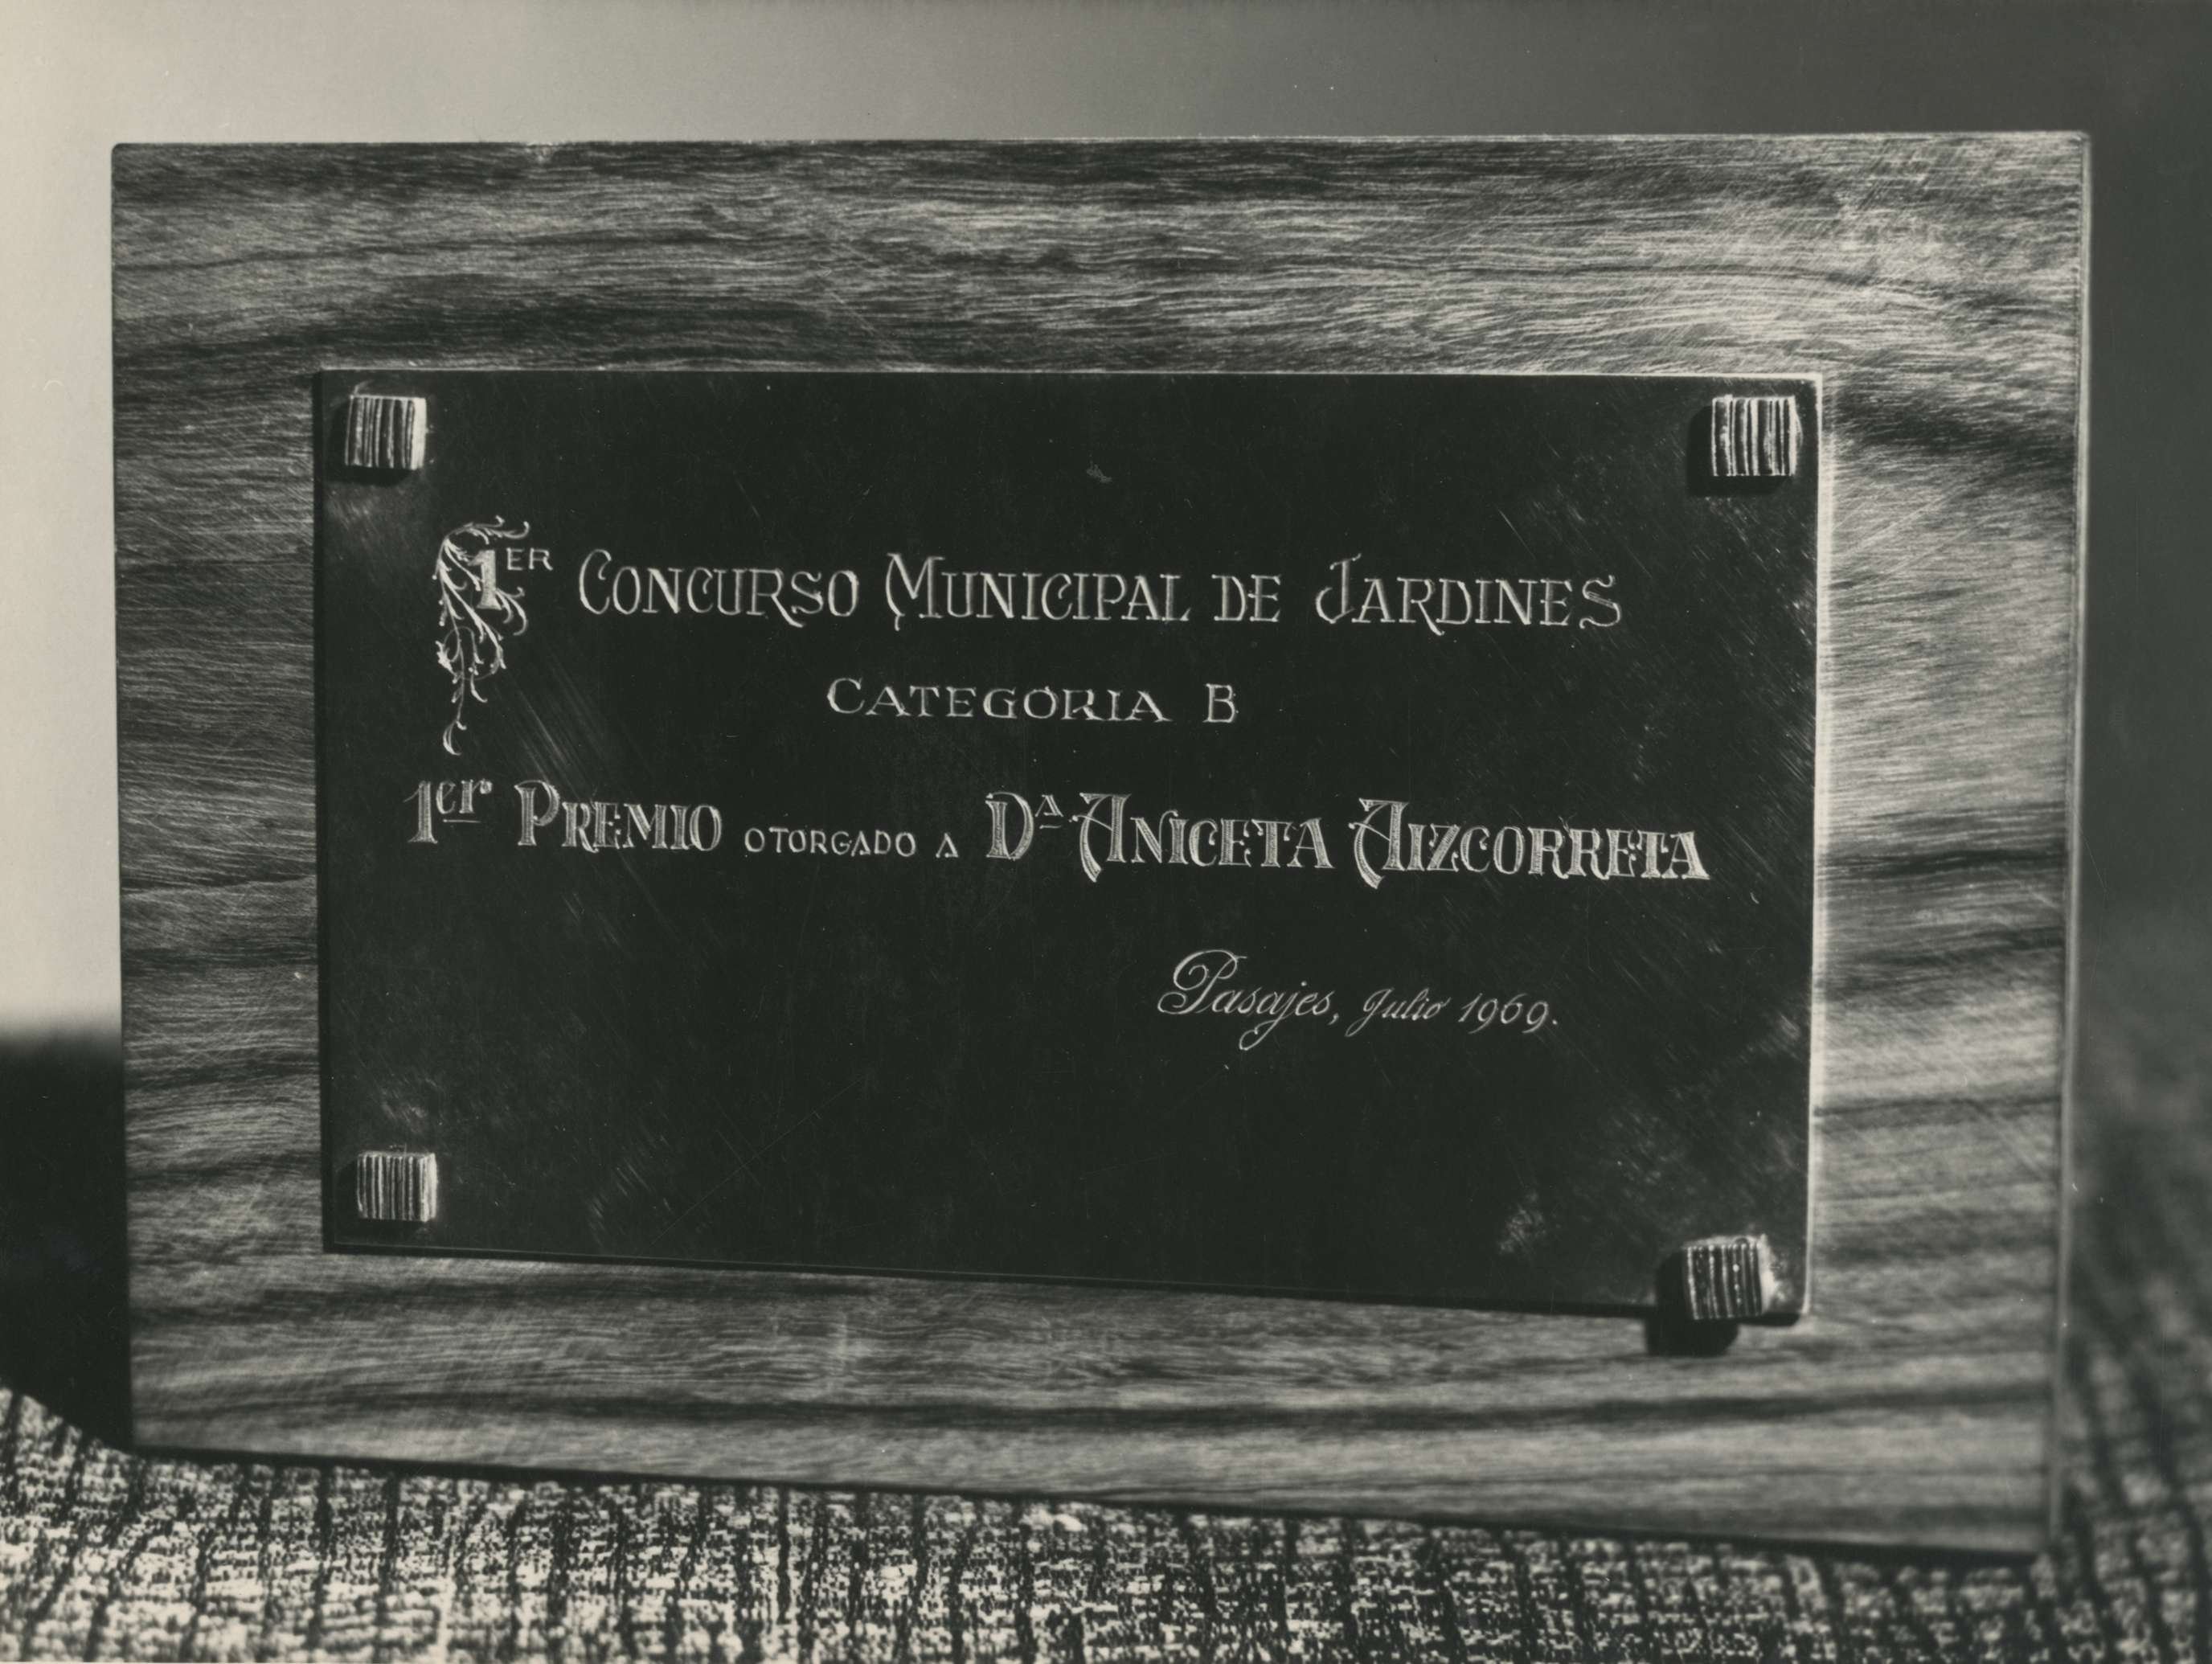 1ER CONCURSO MUNICIPAL DE JARDINES
CATEGORIA B
1er PREMIO OTORGADO A Dª ANICETA AIZCORRETA
Pasajes, Julio 1969.